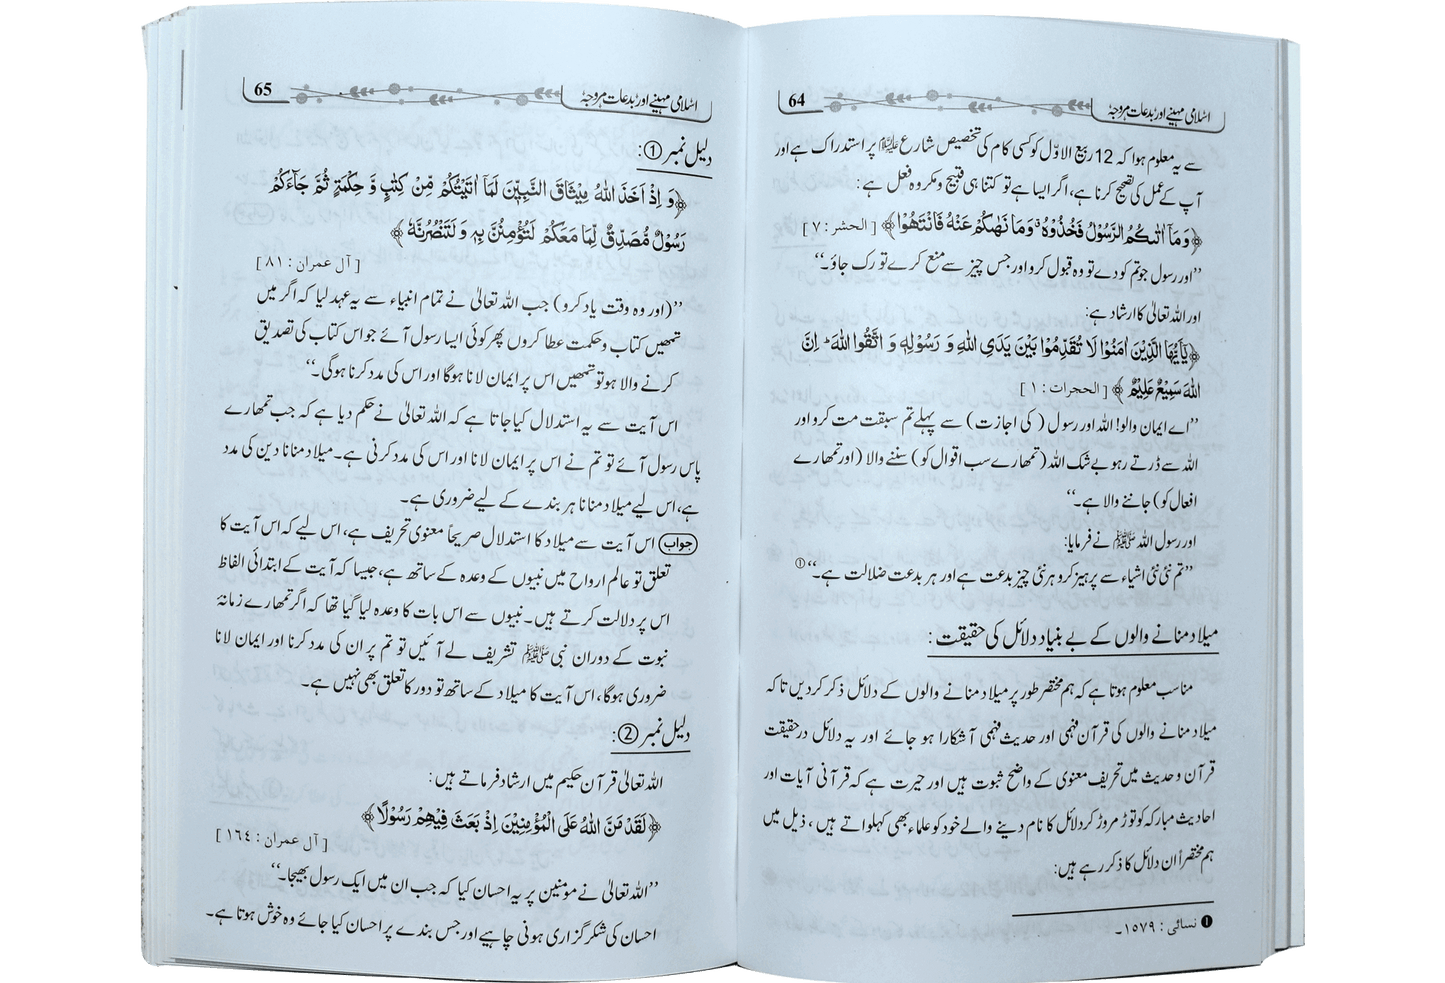 64
اسلامی مہینے اور بدعات مروجہ
سے یہ معلوم ہوا کہ 12 ربیع الاوّل کو کسی کام کی تخصیص شارع علیہ السلام پر استدراک ہے اور
آپ کے عمل کی تصحیح کرنا ہے، اگر ایسا ہے تو کتنا ہی قبیح و مکروہ فعل ہے:
﴿وَمَآ اٰتٰىكُمُ الرَّسُوْلُ فَخُذُوْهُ ۚ وَمَا نَهٰىكُمْ عَنْهُ فَانْتَهُوْا﴾ [الحشر: ٧]
”اور رسول جو تم کو دے تو وہ قبول کرو اور جس چیز سے منع کرے تو رک جاؤ۔“
اور اللہ تعالیٰ کا ارشاد ہے:
﴿يٰٓاَيُّهَا الَّذِيْنَ اٰمَنُوْا لَا تُقَدِّمُوْا بَيْنَ يَدَيِ اللّٰهِ وَ رَسُوْلِهٖ وَ اتَّقُوا اللّٰهَ ؕ اِنَّ
اللّٰهَ سَمِيْعٌ عَلِيْمٌ﴾ [الحجرات: ١]
”اے ایمان والو! اللہ اور رسول (کی اجازت) سے پہلے تم سبقت مت کرو اور
اللہ سے ڈرتے رہو بے شک اللہ (تمھارے سب اقوال کو) سننے والا (اور تمھارے
افعال کو) جاننے والا ہے۔“
اور رسول اللہ ﷺ نے فرمایا:
”تم نئی نئی اشیاء سے پرہیز کرو ہر نئی چیز بدعت ہے اور ہر بدعت ضلالت ہے۔“ ①
میلاد منانے والوں کے بے بنیاد دلائل کی حقیقت:
مناسب معلوم ہوتا ہے کہ ہم مختصر طور پر میلاد منانے والوں کے دلائل ذکر کر دیں تا کہ
میلاد منانے والوں کی قرآن فہمی اور حدیث فہمی آشکارا ہو جائے اور یہ دلائل درحقیقت
قرآن و حدیث میں تحریف معنوی کے واضح ثبوت ہیں اور حیرت ہے کہ قرآنی آیات اور
احادیث مبارکہ کو توڑ مروڑ کر دلائل کا نام دینے والے خود کو علماء بھی کہلواتے ہیں، ذیل میں
ہم مختصراً ان دلائل کا ذکر رہے ہیں:
❶ نسائی: ١٥٧٩۔
65
اسلامی مہینے اور بدعات مروجہ
دلیل نمبر ①:
﴿وَ اِذْ اَخَذَ اللّٰهُ مِيْثَاقَ النَّبِيّٖنَ لَمَآ اٰتَيْتُكُمْ مِّنْ كِتٰبٍ وَّ حِكْمَةٍ ثُمَّ جَآءَكُمْ
رَسُوْلٌ مُّصَدِّقٌ لِّمَا مَعَكُمْ لَتُؤْمِنُنَّ بِهٖ وَ لَتَنْصُرُنَّهٗ﴾
[آل عمران: ٨١]
”(اور وہ وقت یاد کرو) جب اللہ تعالیٰ نے تمام انبیاء سے یہ عہد لیا کہ اگر میں
تمھیں کتاب و حکمت عطا کروں پھر کوئی ایسا رسول آئے جو اس کتاب کی تصدیق
کرنے والا ہو تو تمھیں اس پر ایمان لانا ہوگا اور اس کی مدد کرنا ہوگی۔“
اس آیت سے یہ استدلال کیا جاتا ہے کہ اللہ تعالیٰ نے حکم دیا ہے کہ جب تمھارے
پاس رسول آئے تو تم نے اس پر ایمان لانا اور اس کی مدد کرنی ہے۔ میلاد منانا دین کی مدد
ہے، اس لیے میلاد منانا ہر بندے کے لیے ضروری ہے۔
جواب اس آیت سے میلاد کا استدلال صریحاً معنوی تحریف ہے، اس لیے کہ اس آیت کا
تعلق تو عالم ارواح میں نبیوں کے وعدہ کے ساتھ ہے، جیسا کہ آیت کے ابتدائی الفاظ
اس پر دلالت کرتے ہیں۔ نبیوں سے اس بات کا وعدہ لیا گیا تھا کہ اگر تمھارے زمانۂ
نبوت کے دوران نبی ﷺ تشریف لے آئیں تو تم پر ان کی مدد کرنا اور ایمان لانا
ضروری ہوگا، اس آیت کا میلاد کے ساتھ تو دور کا تعلق بھی نہیں ہے۔
دلیل نمبر ②:
اللہ تعالیٰ قرآن حکیم میں ارشاد فرماتے ہیں:
﴿لَقَدْ مَنَّ اللّٰهُ عَلَى الْمُؤْمِنِيْنَ اِذْ بَعَثَ فِيْهِمْ رَسُوْلًا﴾
[آل عمران: ١٦٤]
”اللہ تعالیٰ نے مومنین پر یہ احسان کیا کہ جب ان میں ایک رسول بھیجا۔“
احسان کی شکر گزاری ہونی چاہیے اور جس بندے پر احسان کیا جائے وہ خوش ہوتا ہے۔